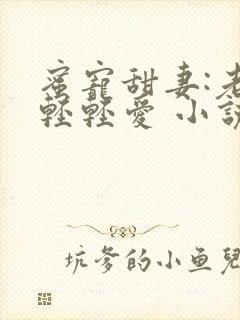 蜜寵甜妻:老
輕輕愛 小說
坑爹的小鱼兒